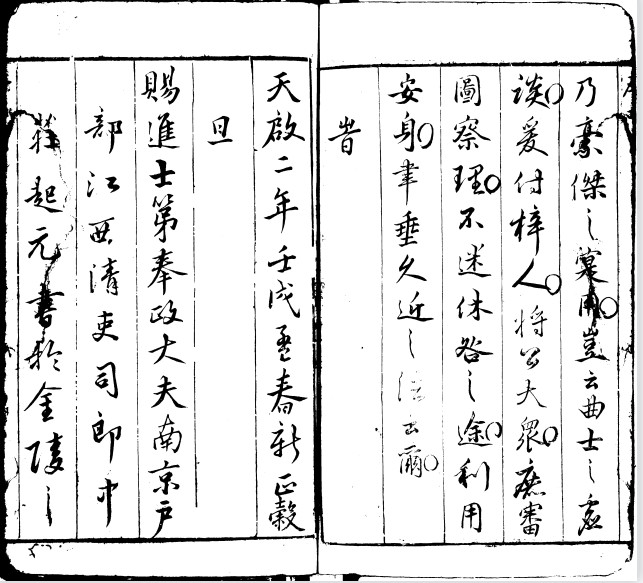 乃豪傑之冥用豈云曲士之虛
談爰付梓人將公大眾庶審
圖察理不迷休咎之途利用
安身聿垂久近之法云爾
旹
天啟二年壬戌孟春新正穀
旦
賜進士第奉政大夫南京戶
部江西清吏司郎中
莊起元書於金陵之